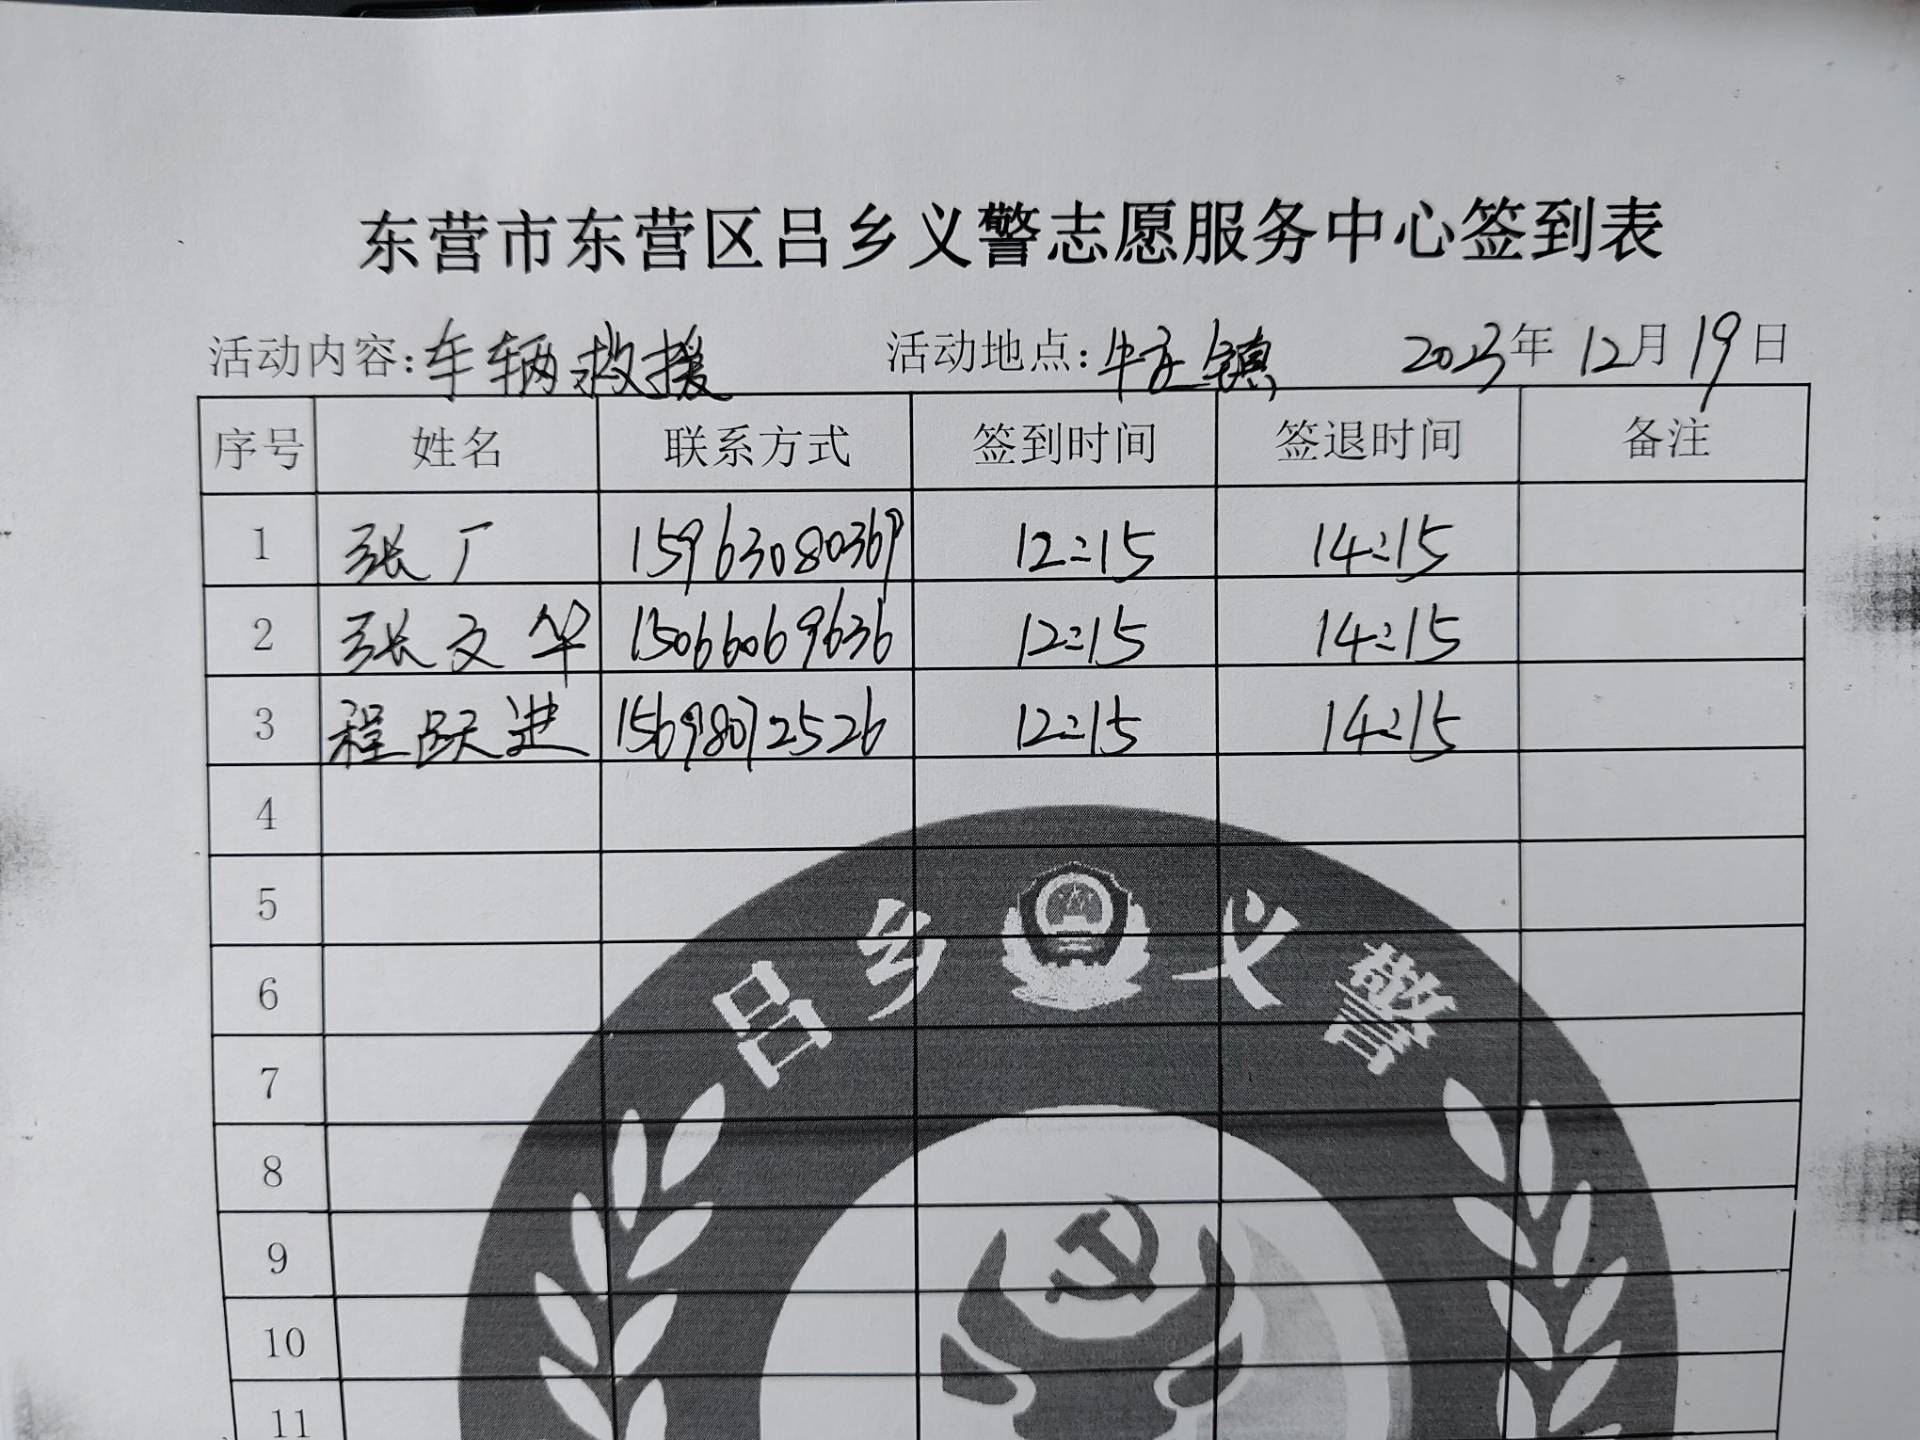 东营市东营区吕乡义警志愿服务中心签到表
活动内容:车辆救援 活动地点:牛庄镇 2023年12月19日
序号 姓名 联系方式 签到时间 签退时间 备注
1 张厂 15963080369 12:15 14:15
2 张文华 15066069636 12:15 14:15
3 程跃进 15698072526 12:15 14:15
4
5
6
7
8
9
10
11
吕乡义警